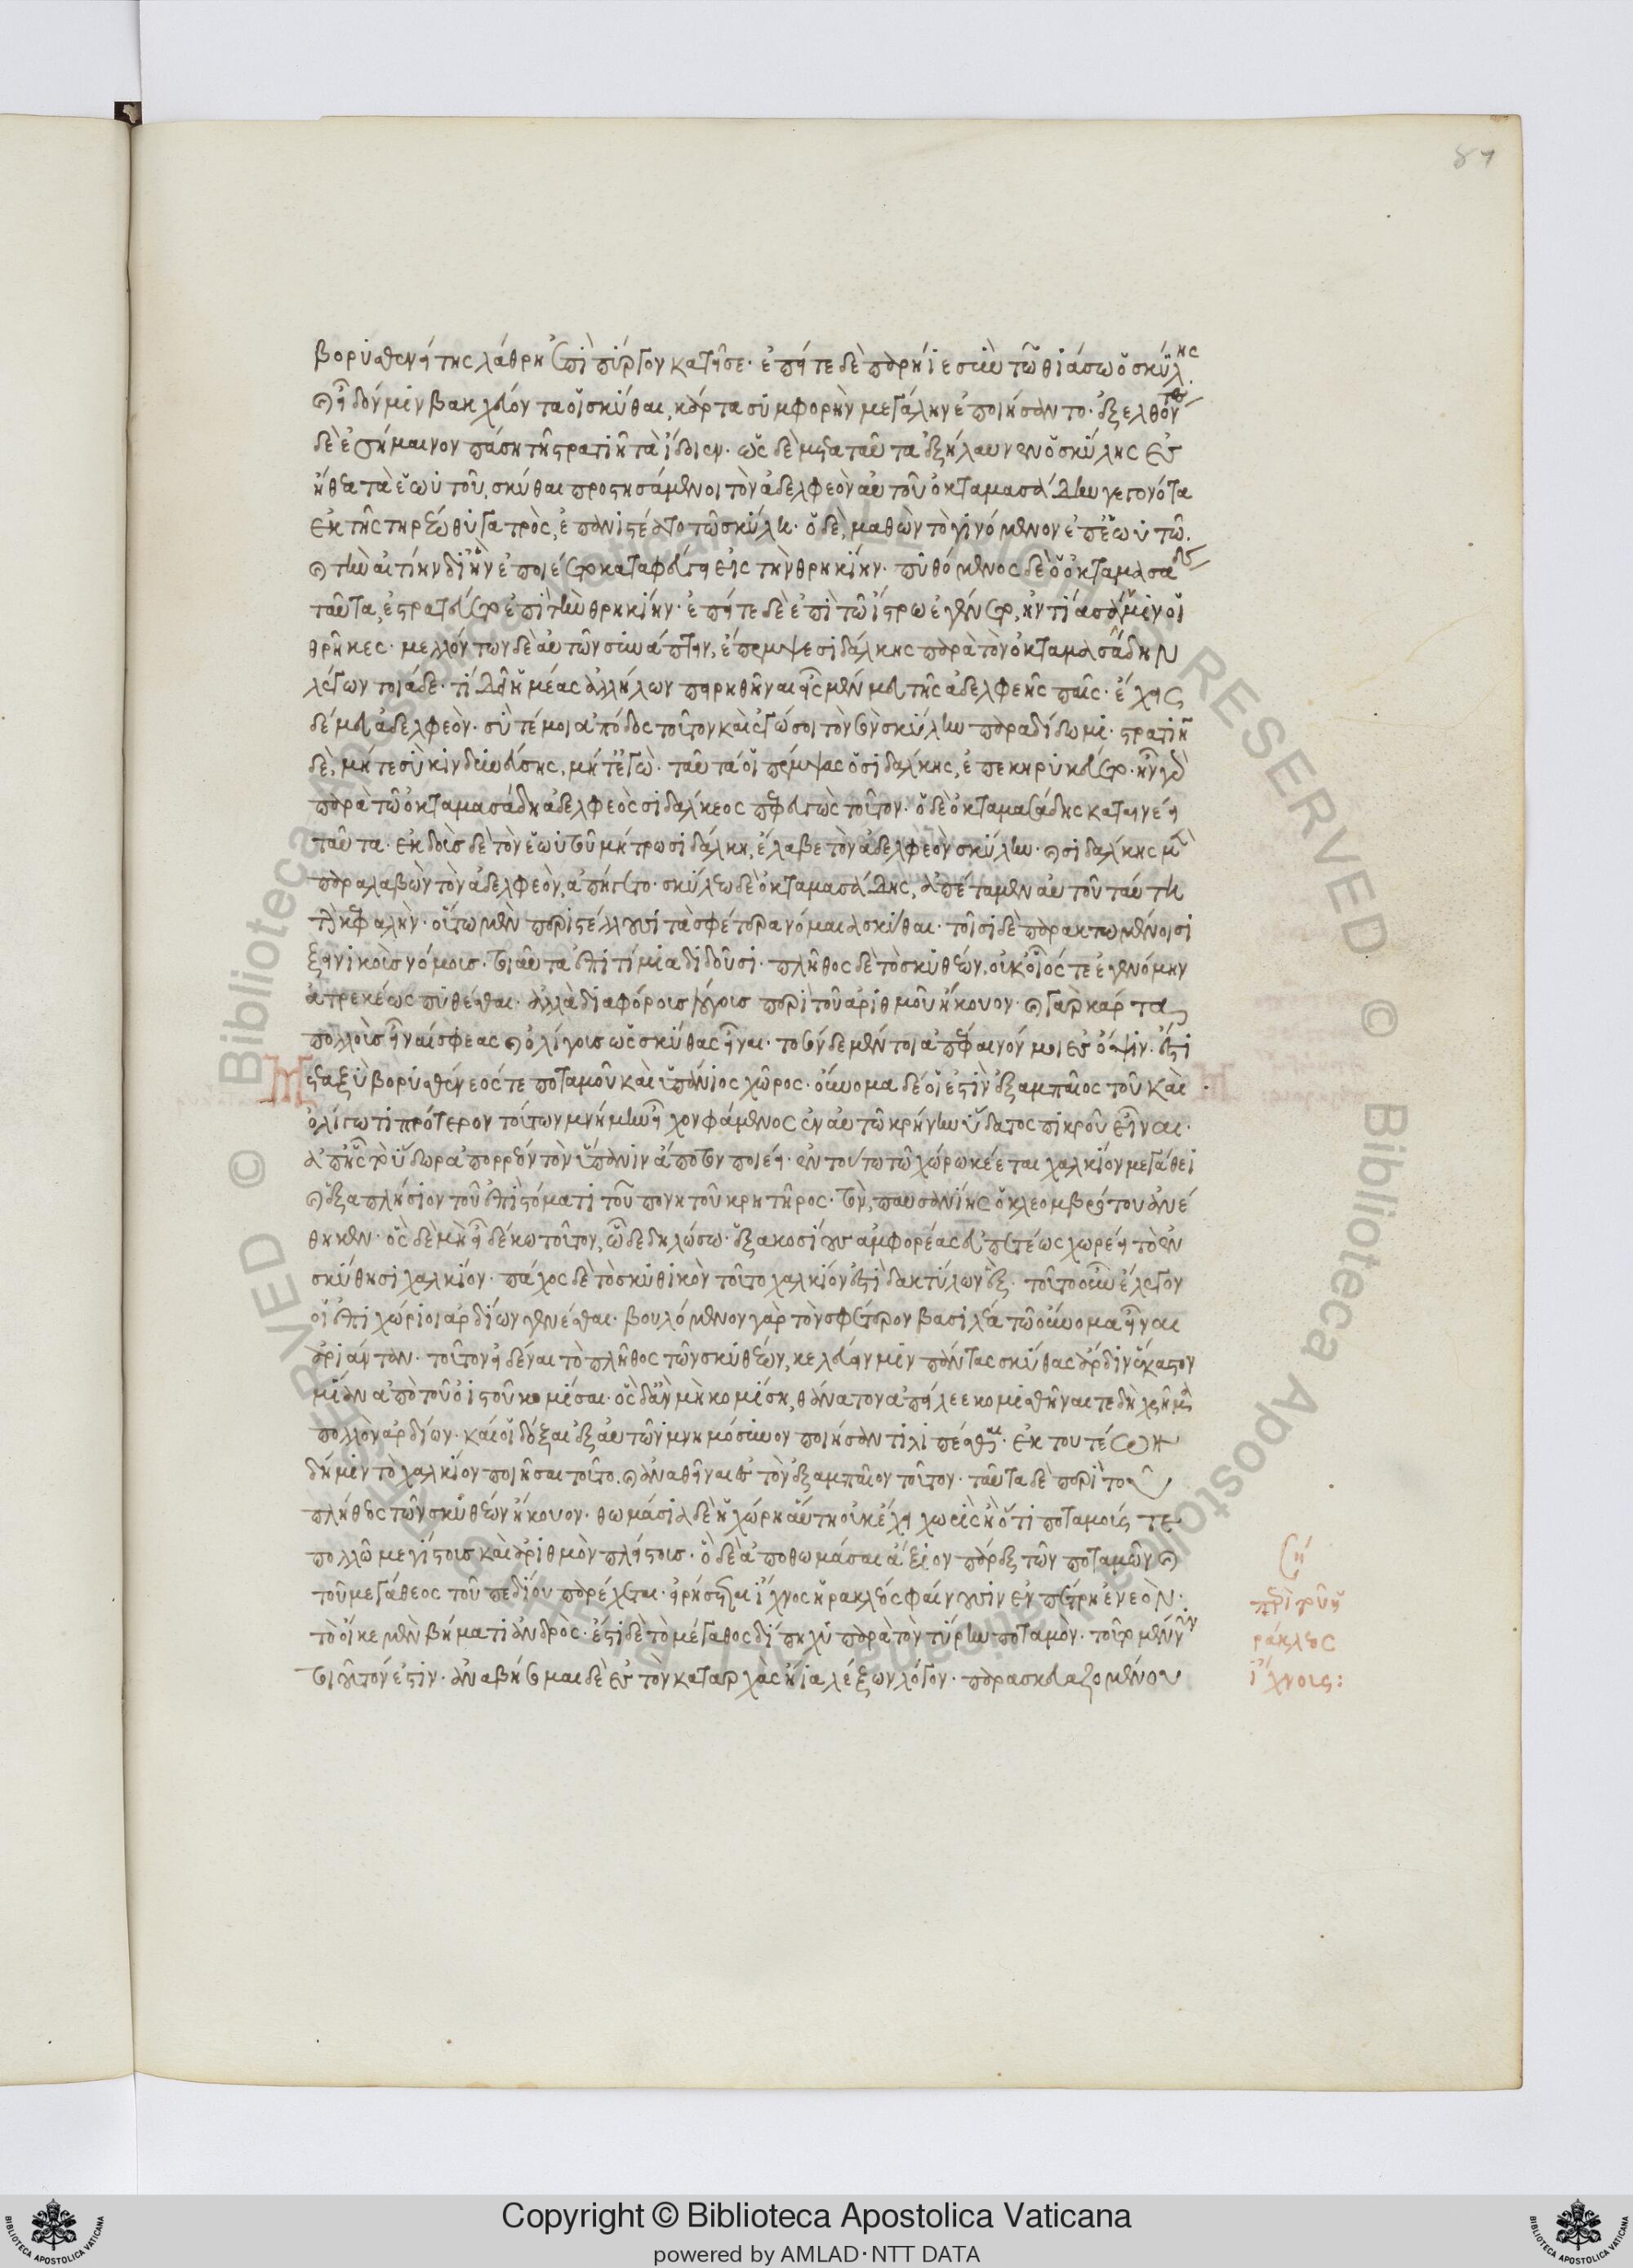 87
βορυσθενείτης λάθρη ἐπὶ πύργον κατῆσε· ἐπείτε δὲ παρήιε σὺν τῶ θιάσω ὁ σκύλης
καὶ εἶδόν μιν βακχεύοντα οἱ σκύθαι, κάρτα συμφορὴν μεγάλην ἐποιήσαντο· ἐξελθόντες
δὲ ἐσήμαινον πάση τῆ στρατιῆ τὰ ἴδοιεν· ὡς δὲ μετὰ ταῦτα ἐξήλαυνεν ὁ σκύλης ἐς
ἤθεα τὰ ἑωυτοῦ, σκύθαι προστησάμενοι τὸν ἀδελφεὸν αὐτοῦ ὀκταμασάδην γεγονότα
ἐκ τῆς τηρέω θυγατρὸς, ἐπανιστέατο τῶ σκύλη· ὁ δὲ, μαθὼν τὸ γινόμενον ἐπ' ἑωυτῶ·
καὶ τὴν αἰτίην δι' ἣν ἐποιέετο καταφεύγει εἰς τὴν θρηκίην· πυθόμενος δὲ ὁ ὀκταμασάδης
ταῦτα, ἐστρατεύετο ἐπὶ τὴν θρηκίην· ἐπείτε δὲ ἐπὶ τῶ ἴστρω ἐγένετο, ἠντίασάν μιν οἱ
θρήικες· μελλόντων δὲ αὐτῶν συνάπτειν, ἔπεμψε σιδάλκης παρὰ τὸν ὀκταμασάδην
λέγων τοιάδε· τί δεῖ ἡμέας ἀλλήλων πειρηθῆναι εἷς μέν μευ τῆς ἀδελφεῆς παῖς· ἔχεις
δέ μευ ἀδελφεόν· σύ τέ μοι ἀπόδος τοῦτον καὶ ἐγώ σοι τὸν σὸν σκύλην παραδίδωμι· στρατιῆ
δὲ, μήτε σὺ κινδυνεύσης, μήτ' ἐγὼ· ταῦτά οἱ πέμψας ὁ σιδάλκης, ἐπεκηρυκεύετο· ἦν γὰρ
παρὰ τῶ ὀκταμασάδη ἀδελφεὸς σιδάλκεος πεφευγὼς τοῦτον· ὁ δὲ ὀκταμασάδης καταινέει
ταῦτα· ἐκδοὺς δὲ τὸν ἑωυτοῦ μήτρω σιδάλκη, ἔλαβε τὸν ἀδελφεὸν σκύλην· καὶ σιδάλκης μὲν
παραλαβὼν τὸν ἀδελφεὸν, ἀπήγετο· σκύλεω δὲ ὀκταμασάδης, ἀπέταμεν αὐτοῦ ταύτη
τὴν κεφαλήν· οὕτω μὲν περιστέλλουσι τὰ σφέτερα νόμαια σκύθαι· τοῖσι δὲ παρακτωμένοισι
ξεινικοὺς νόμους· τοιαῦτα ἐπιτίμια διδοῦσι· πλῆθος δὲ τὸ σκυθέων, οὐκ οἷός τε ἐγενόμην
ἀτρεκέως πυθέσθαι· ἀλλὰ διαφόρους λόγους περὶ τοῦ ἀριθμοῦ ἤκουον· καὶ γὰρ κάρτα
πολλοὺς εἶναί σφεας καὶ ὀλίγους ὡς σκύθας εἶναι· τοσόνδε μέντοι ἀπέφαινόν μοι ἐς ὄψιν· ἔστι
μεταξὺ βορυσθένεός τε ποταμοῦ καὶ ὑπάνιος χῶρος· οὔνομα δέ οἱ ἐστὶν ἐξαμπαῖος τοῦ καὶ
ὀλίγω τι πρότερον τούτων μνήμην εἶχον φάμενος ἐν αὐτῶ κρήνην ὕδατος πικροῦ εἶναι·
ἀπ' ἧς τὸ ὕδωρ ἀπορρέον τὸν ὕπανιν ἄποτον ποιέει· ἐν τούτω τῶ χώρω κέεται χαλκίον μεγάθεϊ
καὶ ἑξαπλήσιον τοῦ ἐπὶ στόματι τοῦ πόντου κρητῆρος· τὸν, παυσανίης ὁ κλεομβρότου ἀνέ
θηκεν· ὃς δὲ μὴ εἶδέ κω τοῦτον, ὧδε δηλώσω· ἑξακοσίους ἀμφορέας εὐπετέως χωρέει τὸ ἐν
σκύθησι χαλκίον· πάχος δὲ τὸ σκυθικὸν τοῦτο χαλκίον ἐστὶ δακτύλων ἕξ· τοῦτο ὦν ἔλεγον
οἱ ἐπιχώριοι ἀρδίων γενέσθαι· βουλόμενον γὰρ τὸν σφέτερον βασιλέα τῶ οὔνομα εἶναι
ἀριάνταν· τοῦτον εἰδέναι τὸ πλῆθος τῶν σκυθέων, κελεύειν μιν πάντας σκύθας ἄρδιν ἕκαστον
μίαν ἀπὸ τοῦ ὀιστοῦ κομίσαι· ὃς δ' ἂν μὴ κομίση, θάνατον ἀπείλεε κομισθῆναί τε δὴ χρῆμα
πολλὸν ἀρδίων· καί οἱ δόξαι ἐξ αὐτῶν μνημόσυνον ποιήσαντι λιπέσθαι· ἐκ τουτέων
δή μιν τὸ χαλκίον ποιῆσαι τοῦτο. καὶ ἀναθεῖναι ἐς τὸν ἐξαμπαῖον τοῦτον· ταῦτα δὲ περὶ τοῦ
πλήθεος τῶν σκυθέων ἤκουον· θωμάσια δὲ ἡ χώρη αὕτη οὐκ ἔχει χωρὶς ἢ ὅτι ποταμούς τε
πολλῶ μεγίστους καὶ ἀριθμὸν πλείστους· ὃ δὲ ἀποθωμάσαι ἄξιον πάρεξ τῶν ποταμῶν καὶ
τοῦ μεγάθεος τοῦ πεδίου παρέχεται· εἰρήσεται ἴχνος ἡρακλέος φαίνουσιν ἐν πέτρη ἐνεόν·
τὸ οἶκε μὲν βήματι ἀνδρὸς· ἔστι δὲ τὸ μέγαθος δίπηχυ παρὰ τὸν τύρην ποταμὸν· τοῦτο μέν νυν
τοιοῦτόν ἐστιν· ἀναβήσομαι δὲ ἐς τὸν κατ' ἀρχὰς ἤια λέξων λόγον· παρασκευαζομένου
ση
περὶ τοῦ ἡ
ρακλέος
ἴχνους:
Copyright © Biblioteca Apostolica Vaticana
powered by AMLAD·NTT DATA